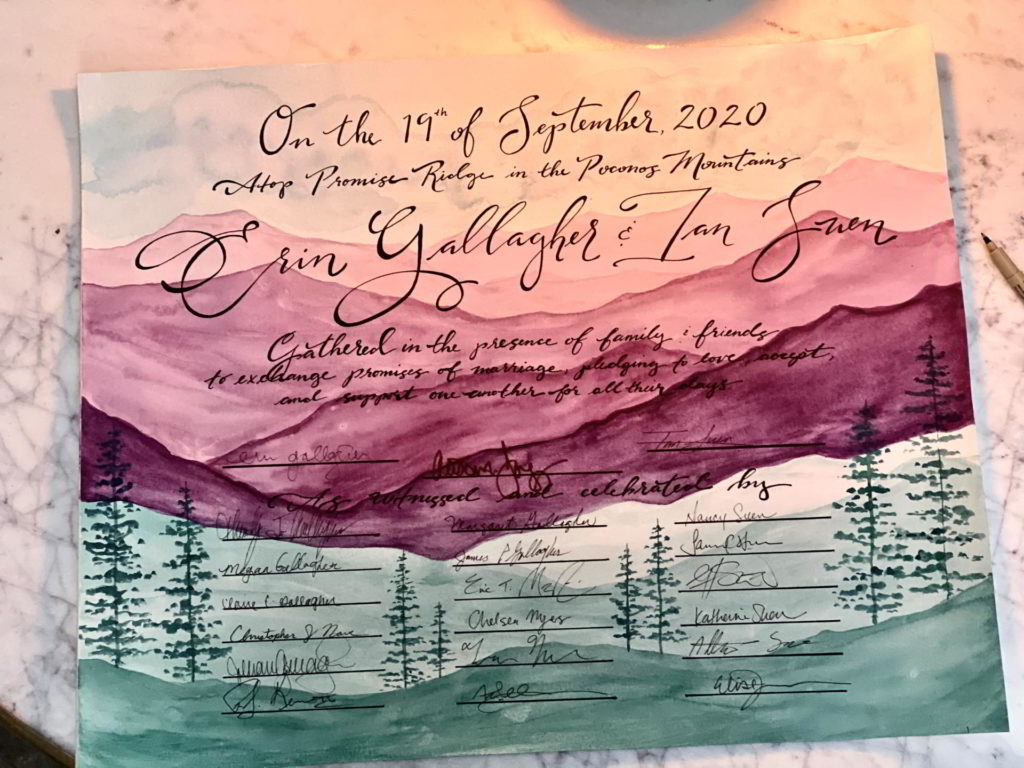 On the 19th of September, 2020
Atop Promise Ridge in the Poconos Mountains
Erin Gallagher & Ian Suen
Gathered in the presence of family & friends
to exchange promises of marriage, pledging to love, accept,
and support one another for all their days
Erin Gallagher Ian Suen
As witnessed and celebrated by
Gallagher Margaret Gallagher Nancy Suen
Megan Gallagher James P Gallagher
Eric T.
Gallagher Chelsea Myers Katherine Suen
Christopher J